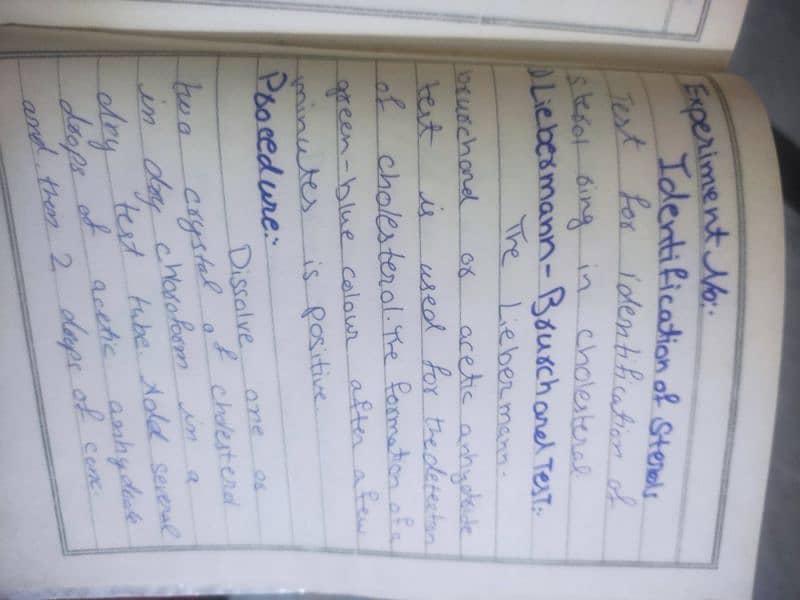 Experiment No:-
Identification of Sterols
Test for identification of
sterol ring in cholesterol
1) Liebermann-Brurchand Test:-
The Liebermann-
brurchand or acetic anhydride
test is used for the detection
of cholesterol. The formation of a
green-blue colour after a few
minutes is positive.
Procedure:-
Dissolve one or
two crystal of cholesterol
in dry chloroform in a
dry test tube. Add several
drops of acetic anhydride
and then 2 drops of conc.